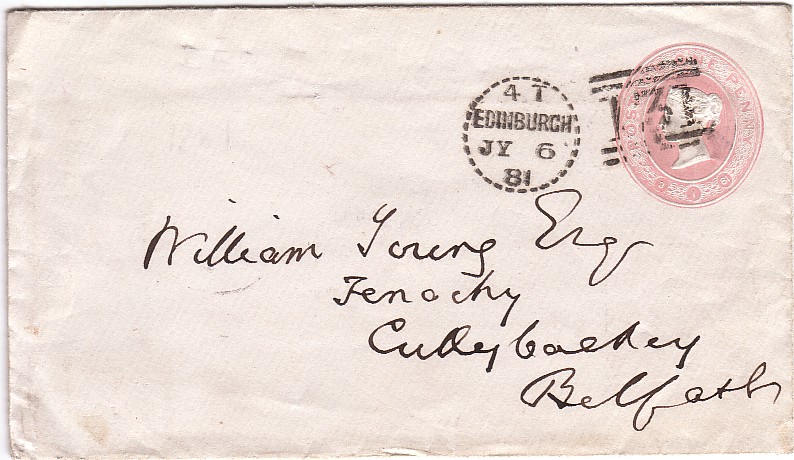 4 T
EDINBURGH
JY 6
81
POSTAGE ONE PENNY
William Young Esq
Fenachy
Cullybackey
Belfast